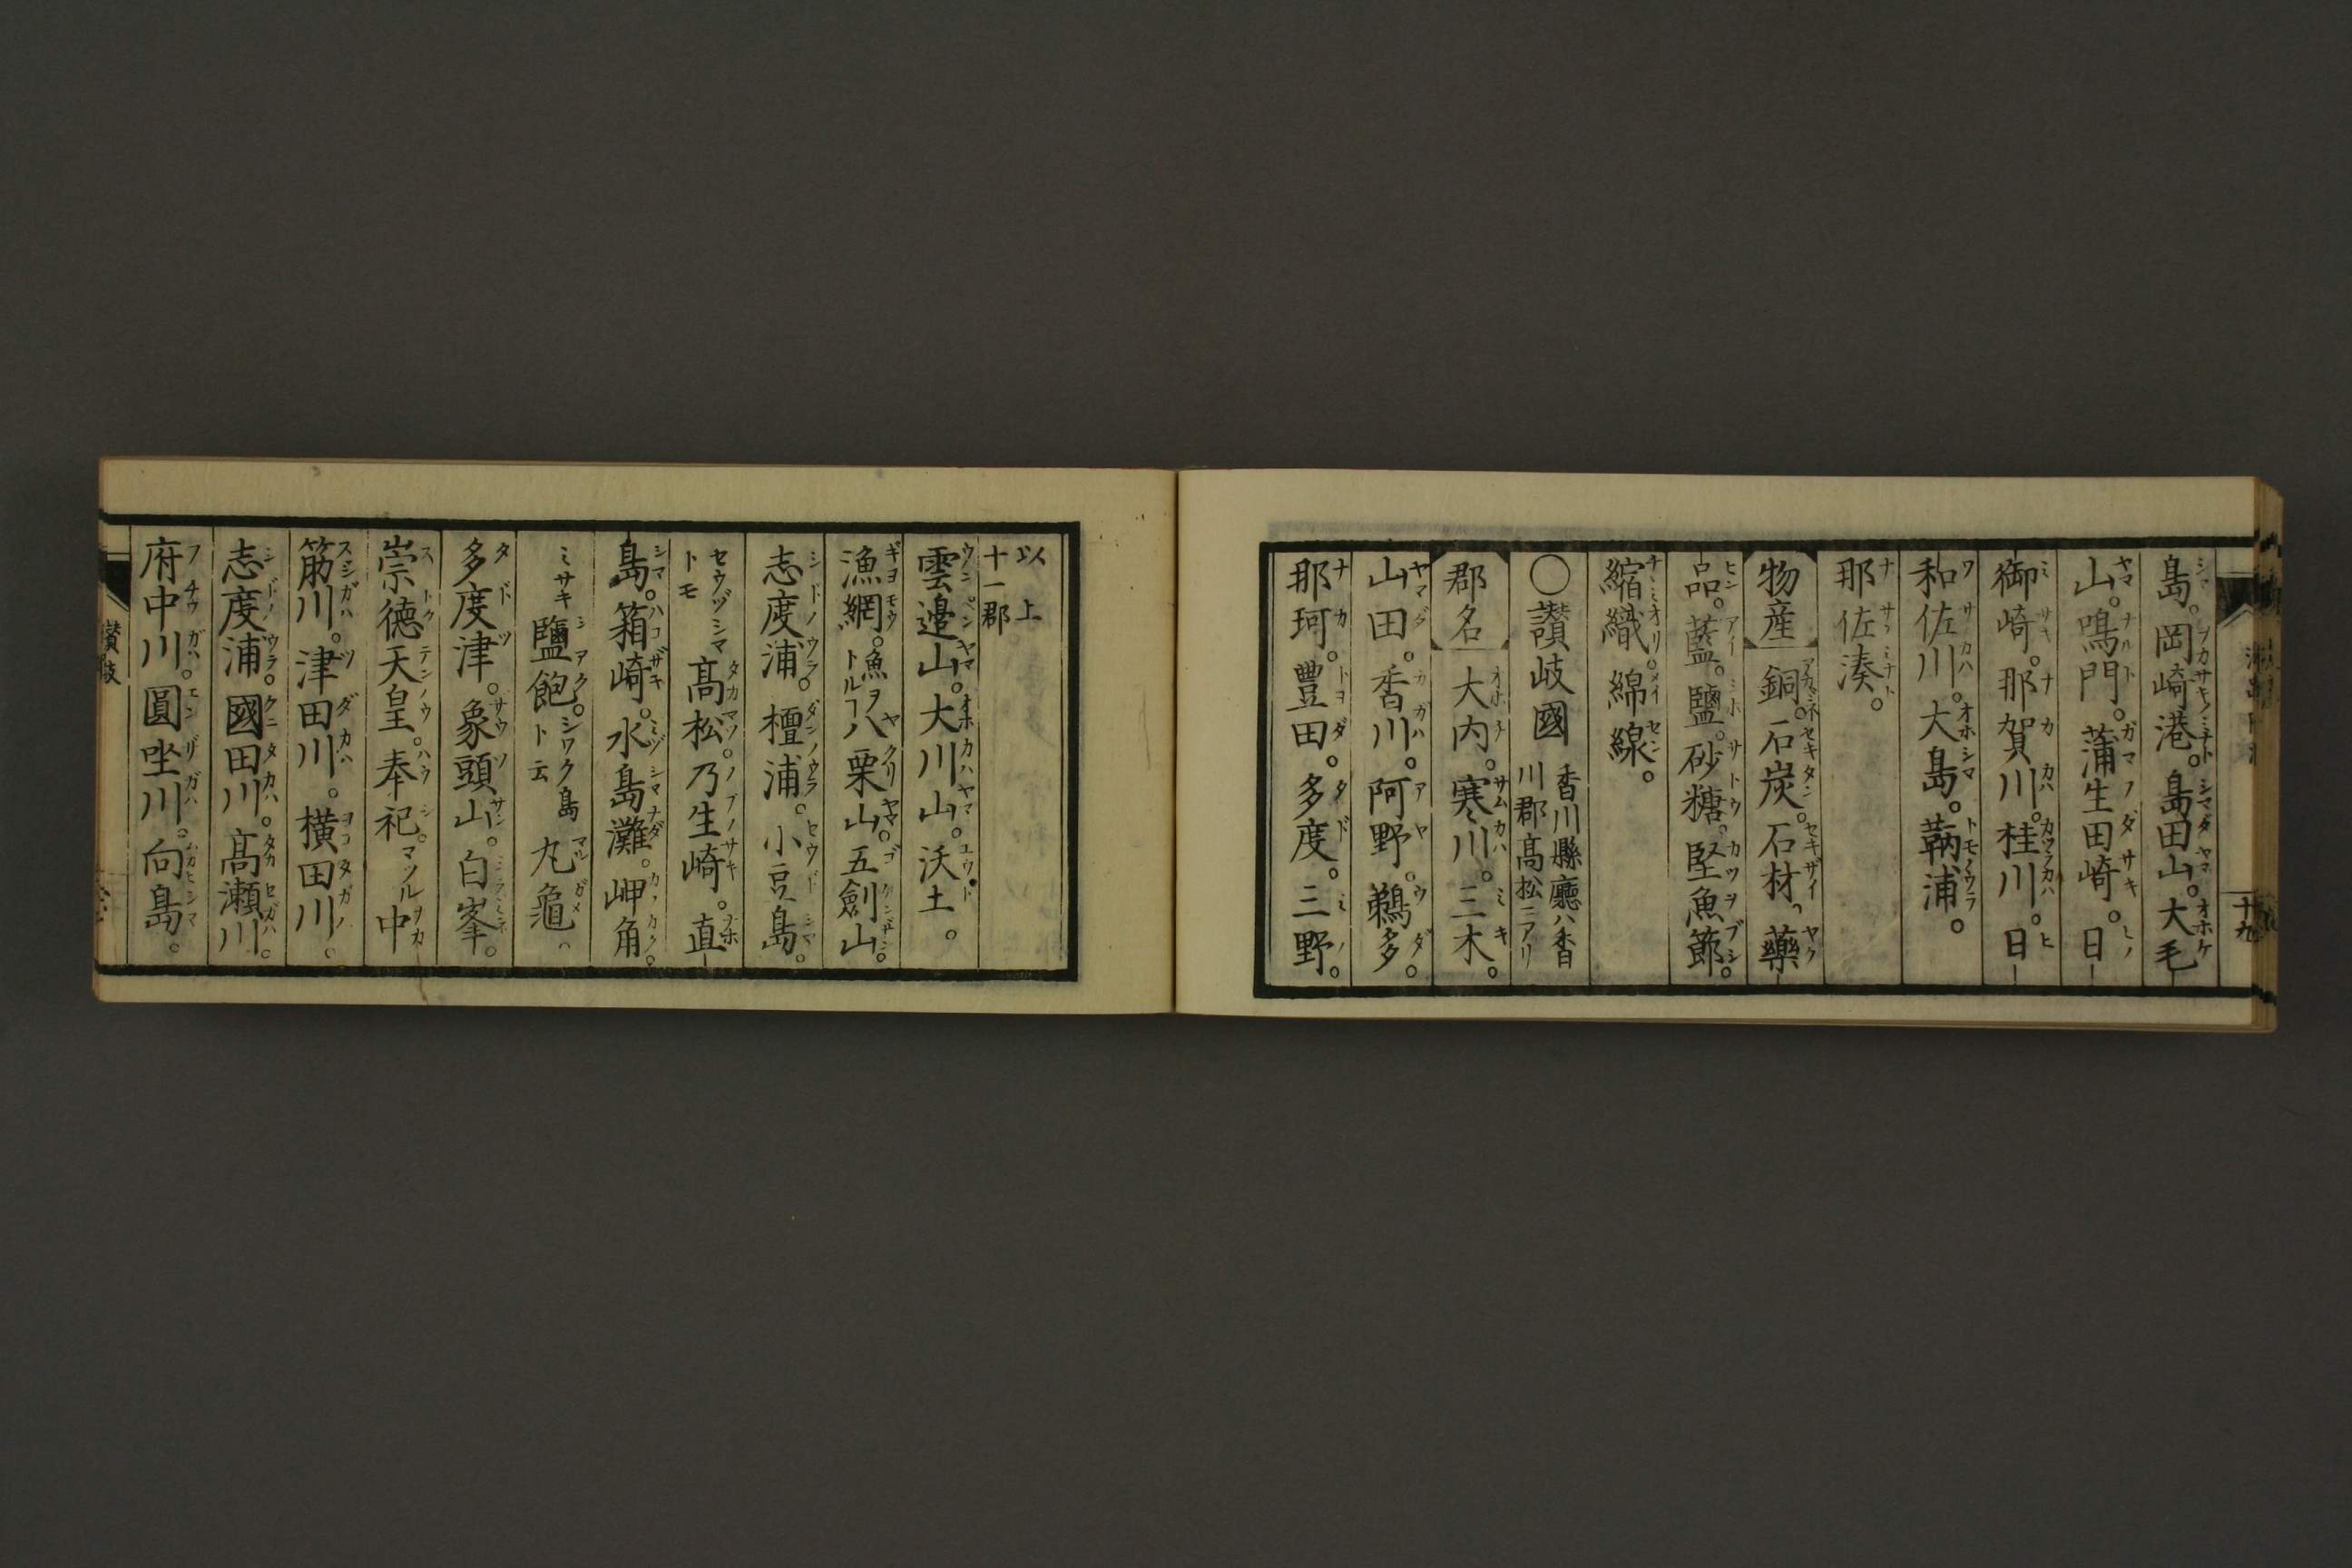 島。岡崎港。島田山。大毛
山。鳴門。蒲生田崎。日
御崎。那賀川。桂川。日
和佐川。大島。鞆浦。
那佐湊。
物産 銅。石炭。石材、藥
品。藍。鹽。砂糖。堅魚節。
縮織。綿線。
〇讃岐國 香川縣廳ハ香川郡高松ニアリ
郡名 大内。寒川。三木。
山田。香川。阿野。鵜多。
那珂。豊田。多度。三野。
以上十一郡
雲邉山。大川山。沃土。
漁網。魚ヲトルコハ八栗山。五劍山。
志度浦。檀浦。小豆島。
セウヅシマトモ 高松。乃生崎。直
島。箱崎。水島灘。岬角。
ミサキ 鹽飽。シワク島ト云 丸龜。
多度津。象頭山。白峯。
崇德天皇。奉祀。マツル中
筋川。津田川。横田川。
志度浦。國田川。高瀬川。
府中川。圓坐川。向島。
讃岐
十九